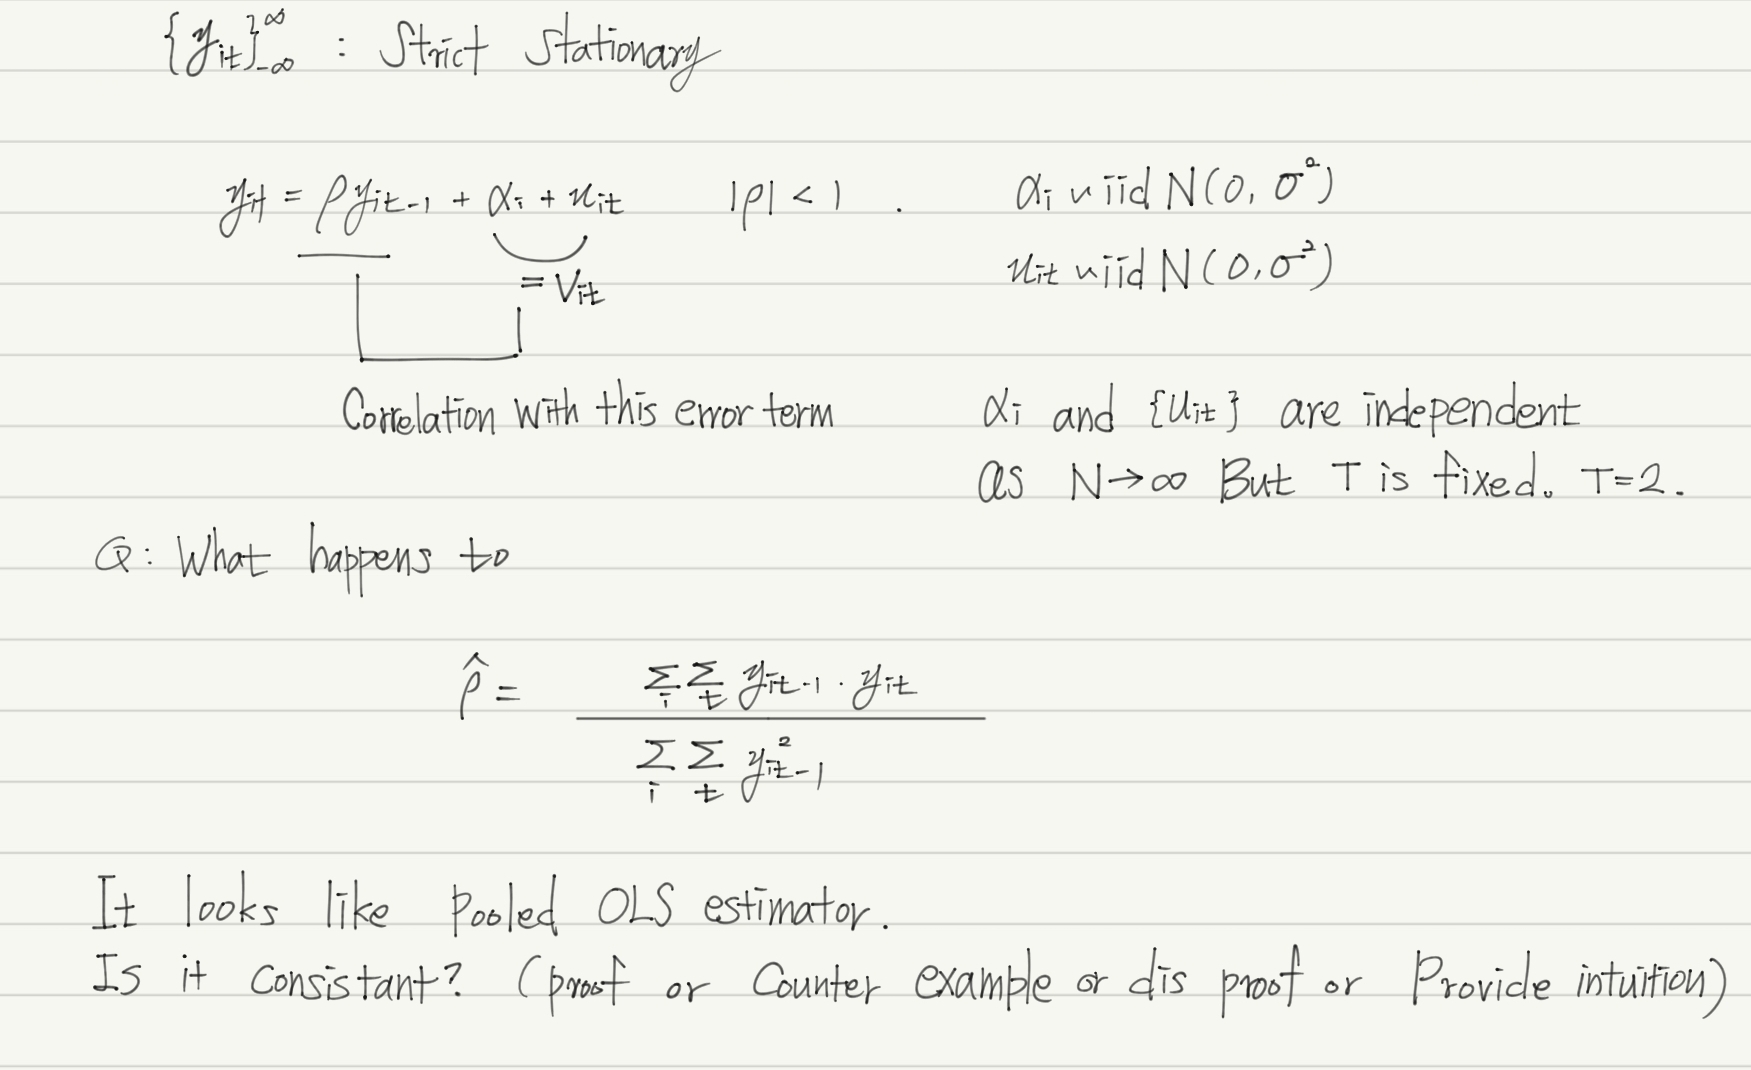 {y_it}_{-∞}^{∞} : Strict Stationary
y_it = ρy_it-1 + α_i + u_it   |ρ| < 1 .   α_i ~ iid N(0, σ²)
= V_it   u_it ~ iid N(0, σ²)
Correlation with this error term   α_i and {u_it} are independent
as N→∞ But T is fixed. T=2.
Q: What happens to
ρ̂ = Σ_i Σ_t y_it-1 · y_it / Σ_i Σ_t y²_it-1
It looks like pooled OLS estimator.
Is it consistant? (proof or Counter example or dis proof or Provide intuition)